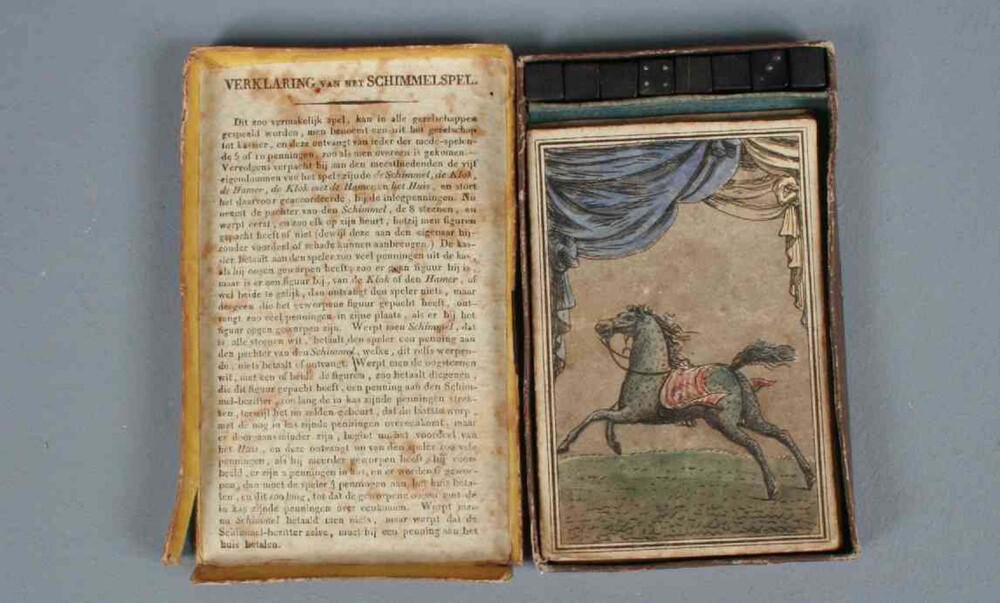 VERKLARING VAN HET SCHIMMELSPEL.
Dit zoo vermakelijk spel, kan in alle gezelschappen
gespeeld worden, men benoemt een uit het gezelschap
tot kassier, en deze ontvangt van ieder der mede-spelen-
de 5 of 10 penningen, zoo als men overeen is gekomen.—
Vervolgens verpacht hij aan den meestbiedenden de vijf
eigendommen van het spel zijnde de Schimmel, de Klok,
de Hamer, de Klok met de Hamer en het Huis, en stort
het daarvoor geaccordeerde, bij de inlegpenningen. Nu
neemt de pachter van den Schimmel, de 8 steenen, en
werpt eerst, en zoo elk op zijn beurt, hetzij men figuren
gepacht heeft of niet (dewijl deze aan den eigenaar bij-
zonder voordeel of schade kunnen aanbrengen.) De kas-
sier betaalt aan den speler zoo veel penningen uit de kas,
als hij oogen geworpen heeft, zoo er geen figuur bij is,
maar is er een figuur bij, van de Klok of den Hamer, of
wel beide te gelijk, dan ontvangt den speler niets, maar
desgeen die het geworpene figuur gepacht heeft, ont-
vangt zoo veel penningen in zijne plaats, als er bij het
figuur oogen geworpen zijn. Werpt men Schimmel, dat
is alle steenen wit, betaalt den speler een penning aan
den pachter van den Schimmel, welke, dit zelfs werpen-
de, niets betaalt of ontvangt. Werpt men de oogsteenen
wit, met een of beide de figuren, zoo betaalt diegenen,
die dit figuur gepacht heeft, een penning aan den Schim-
mel-bezitter, zoo lang de in kas zijnde penningen strek-
ken, terwijl het nu zelden gebeurt, dat de laatste worp,
met de nog in kas zijnde penningen overeenkomt, maar
er doorgaans minder zijn, begint nu het voordeel van
het Huis, en deze ontvangt nu van den speler zoo vele
penningen, als hij meerder geworpen heeft, bij voor-
beeld, er zijn 2 penningen in kas, en er worden gewor-
pen, dan moet de speler 3 penningen aan het huis beta-
len, en dit zoo lang, tot dat de geworpene oogen met de
in kas zijnde penningen over eenkomen. Werpt men
nu Schimmel betaald men niets, maar werpt dat de
Schimmel-bezitter zelve, moet hij een penning aan het
huis betalen.